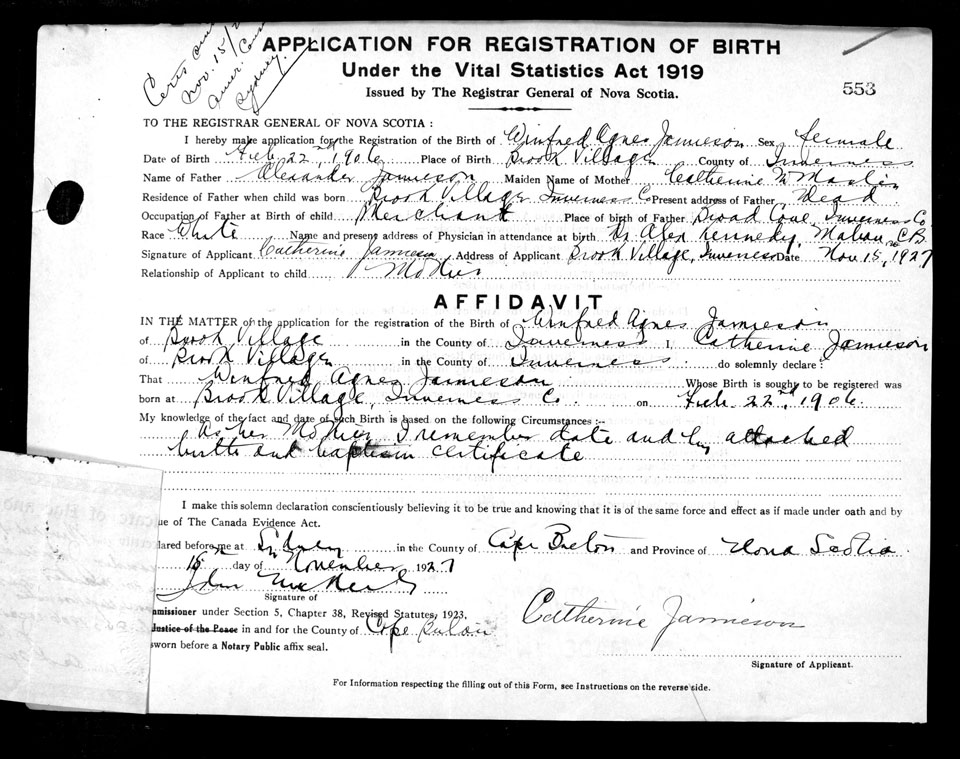 Nov. 15/2
Sydney.
APPLICATION FOR REGISTRATION OF BIRTH
Under the Vital Statistics Act 1919
Issued by The Registrar General of Nova Scotia.
553
TO THE REGISTRAR GENERAL OF NOVA SCOTIA:
I hereby make application for the Registration of the Birth of Winfred Agnes Jamieson Sex female
Date of Birth Feb 22nd, 1906 Place of Birth Brook Village County of Inverness
Name of Father Alexander Jamieson Maiden Name of Mother Catherine
Residence of Father when child was born Brook Village Inverness Co Present address of Father Dead
Occupation of Father at Birth of child Merchant Place of birth of Father Broad Cove, Inverness Co
Race White Name and present address of Physician in attendance at birth Dr Alex Kennedy, Mabou, C.B.
Signature of Applicant Catherine Jamieson Address of Applicant Brook Village, Inverness Date Nov 15, 1927
Relationship of Applicant to child Mother
AFFIDAVIT
IN THE MATTER of the application for the registration of the Birth of Winfred Agnes Jamieson
of Brook Village in the County of Inverness I, Catherine Jamieson
of Brook Village in the County of Inverness do solemnly declare:
That Winfred Agnes Jamieson Whose Birth is sought to be registered was
born at Brook Village, Inverness Co. on Feb. 22nd, 1906.
My knowledge of the fact and date of such Birth is based on the following Circumstances:--
As her Mother I remember date and by attached
birth and baptism certificate
I make this solemn declaration conscientiously believing it to be true and knowing that it is of the same force and effect as if made under oath and by
ue of The Canada Evidence Act.
lared before me at Sydney in the County of Cape Breton and Province of Nova Scotia
15th day of November 1927
John
Signature of
mmissioner under Section 5, Chapter 38, Revised Statutes, 1923,
Justice of the Peace in and for the County of Cape Breton
sworn before a Notary Public affix seal.
Catherine Jamieson
Signature of Applicant.
For Information respecting the filling out of this Form, see Instructions on the reverse side.